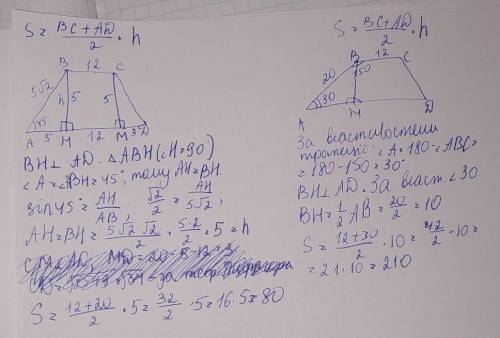 S = BC + AD / 2 · h
B 12 C
5√2 h 5 5
A 45 5 M 12 M 3 D
BH ⊥ AD. △ABH (∠H = 90°)
∠A = ∠ABH = 45°, тому AH = BH.
sin 45° = AH / AB; √2 / 2 = AH / 5√2;
AH = BH = 5√2 √2 / 2 = 5·2 / 2 = 5 = h
S = 12 + 20 / 2 · 5 = 32 / 2 · 5 = 16·5 = 80
S = BC + AD / 2 · h
B 12 C
20 150
A 30 M D
За властивостями
трапеції: ∠A = 180 - ∠ABC =
= 180 - 150 = 30°
BH ⊥ AD. За власт. ∠30
BH = 1/2 AB = 20 / 2 = 10
S = 12 + 30 / 2 · 10 = 42 / 2 · 10 =
= 21 · 10 = 210